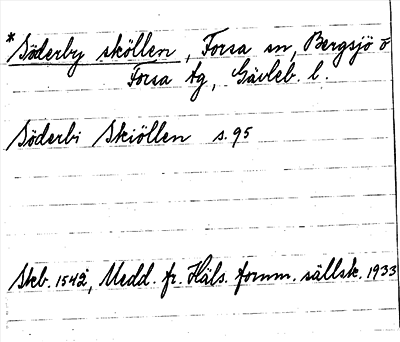 *Söderby sköllen, Forsa sn, Bergsjö o
Forsa tg, Gävleb. l.
Söderbi Skiöllen s. 95
Skb. 1542, Medd. fr. Häls. fornm. sällsk. 1933